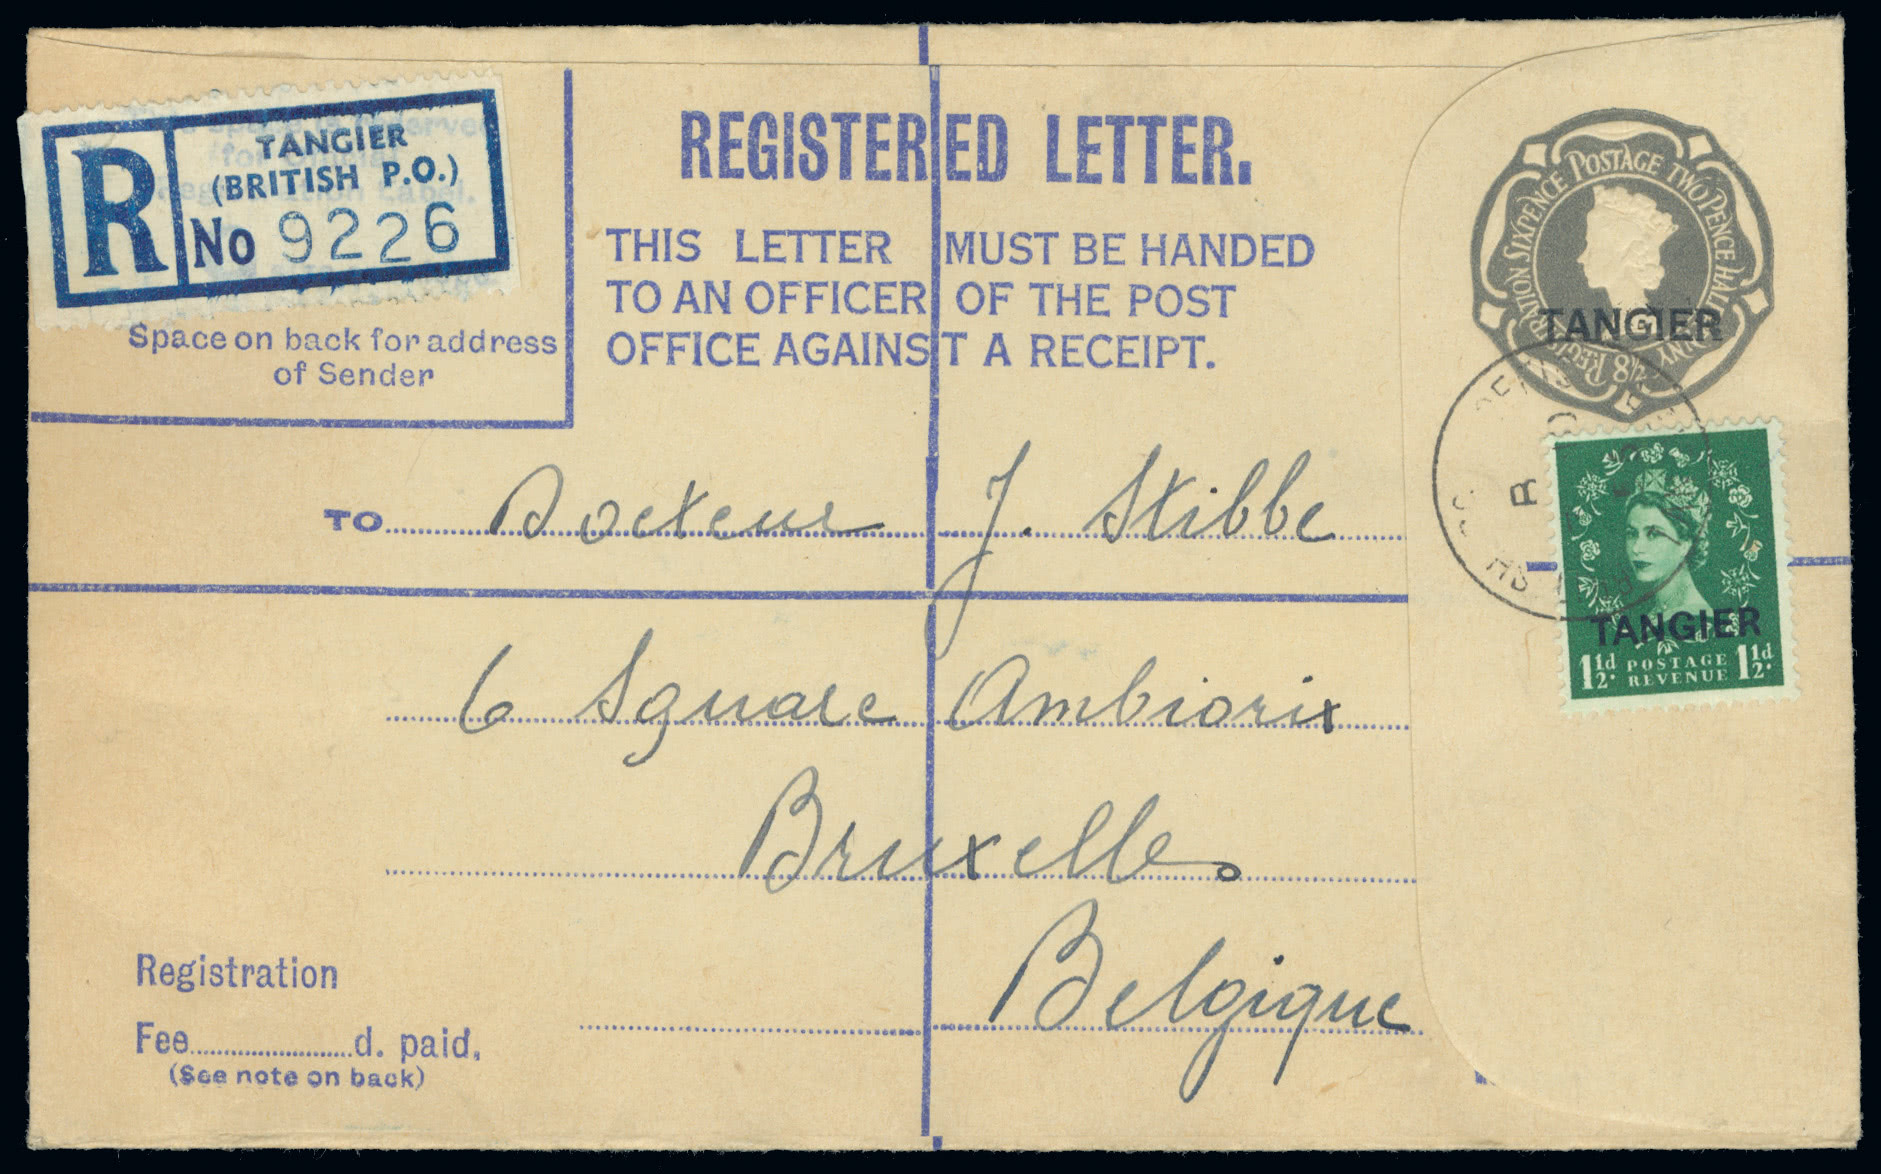 TANGIER
(BRITISH P.O.)
R No 9226
Space on back for address
of Sender
REGISTERED LETTER.
THIS LETTER MUST BE HANDED
TO AN OFFICER OF THE POST
OFFICE AGAINST A RECEIPT.
POSTAGE TWO PENCE HALFPENNY
REGISTRATION SIXPENCE
8½
TANGIER
TANGIER
1½d. POSTAGE REVENUE 1½d.
TO Docteur J. Stibbe
6 Square Ambiorix
Bruxelles
Belgique
Registration
Fee d. paid.
(See note on back)